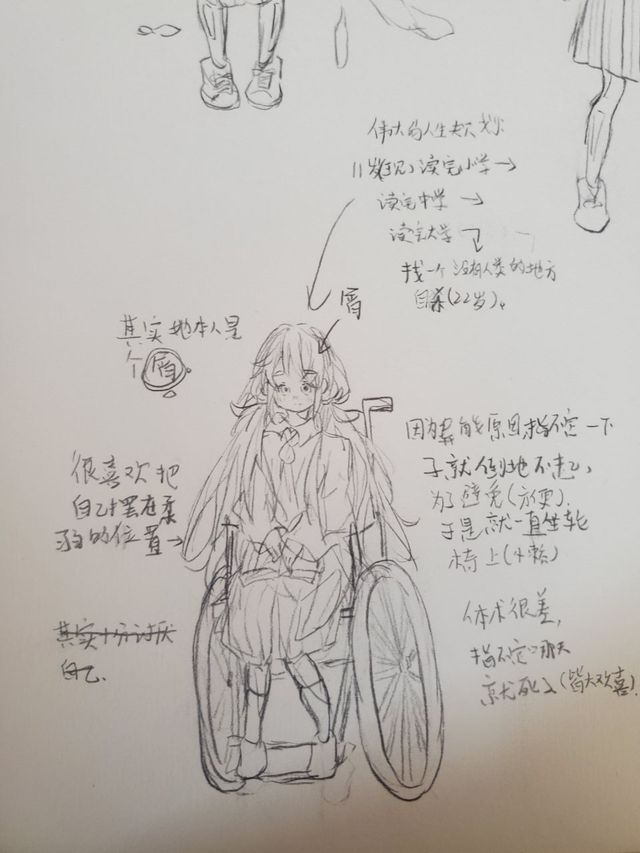 伟大的人生规划
11岁(现)读完小学→
读完中学→
读完大学
找一个没有人类的地方
自杀(22岁)。
屑
其实她本人是
个屑
很喜欢把
自己摆在柔
弱的位置→
其实十分讨厌
自己.
因为异能原因指不定一下
子就倒地不起,
为了避免(方便),
于是就一直坐轮
椅上
体术很差,
指不定哪天
就死了(皆大欢喜).